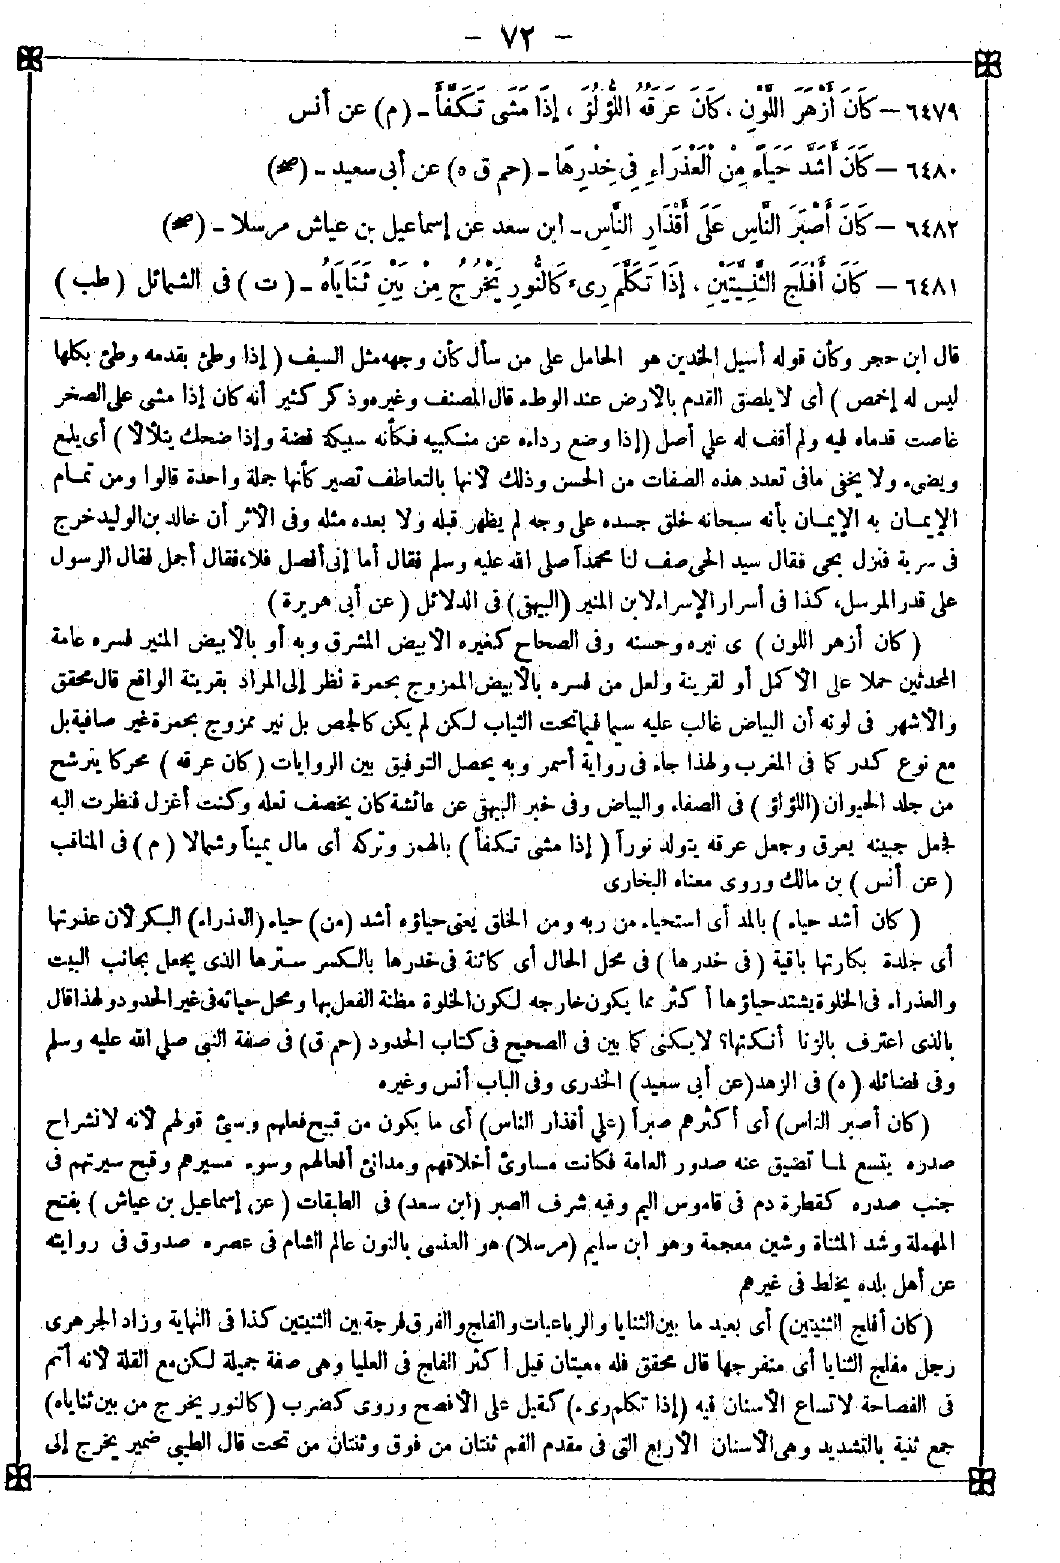 - ٧٢ -
٦٤٧٩ — كَانَ أَزْهَرَ اللَّوْنِ، كَانَ عَرَقَهُ اللُّؤْلُؤَ، إِذَا مَشَى تَكَفَّأَ - (م) عن أنس
٦٤٨٠ — كَانَ أَشَدَّ حَيَاءً مِنَ الْعَذْرَاءِ فِي خِدْرِهَا - (حم ق ه) عن أبي سعيد - (صح)
٦٤٨٢ — كَانَ أَصْبَرَ النَّاسِ عَلَى أَقْذَارِ النَّاسِ - ابن سعد عن إسماعيل بن عياش مرسلا - (صح)
٦٤٨١ — كَانَ أَفْلَجَ الثَّنِيَّتَيْنِ، إِذَا تَكَلَّمَ رِىءَ كَالنُّورِ يَخْرُجُ مِنْ بَيْنِ ثَنَايَاهُ - (ت) فى الشمائل (طب)
قال ابن حجر وكأن قوله أسيل الخدين هو الحامل على من سأل كأن وجهه مثل السيف (إذا وطئ بقدمه وطئ بكلها
ليس له إخمص) أى لا يلصق القدم بالأرض عند الوطء قال المصنف وغيره وذكر كثير أنه كان إذا مشى على الصخر
غاصت قدماه فيه ولم أقف له على أصل (إذا وضع رداءه عن منكبيه فكأنه سبيكة فضة وإذا ضحك يتلألأ) أى يلمع
ويضىء ولا يخفى ما فى تعدد هذه الصفات من الحسن وذلك لأنها بالتعاطف تصير كأنها جملة واحدة قالوا ومن تمام
الإيمان به الإيمان بأنه سبحانه خلق جسده على وجه لم يظهر قبله ولا بعده مثله وفى الأثر أن خالد بن الوليد خرج
فى سرية فنزل بحى فقال سيد الحى صف لنا محمداً صلى الله عليه وسلم فقال أما إنى أفصل فلا، فقال أجمل فقال الرسول
على قدر المرسل، كذا فى أسرار الإسراء لابن المنير (البيهقى) فى الدلائل (عن أبى هريرة)
(كان أزهر اللون) ى نيره وحسنه وفى الصحاح كغيره الأبيض المشرق وبه أو بالأبيض المنير فسره عامة
المحدثين حملا على الأكمل أو لقرينة ولعل من فسره بالأبيض الممزوج بحمرة نظر إلى المراد بقرينة الواقع قال محقق
والأشهر فى لونه أن البياض غالب عليه سيما فيما تحت الثياب لكن لم يكن كالجص بل نير ممزوج بحمرة غير صافية بل
مع نوع كدر كما فى المغرب ولهذا جاء فى رواية أسمر وبه يحصل التوفيق بين الروايات (كان عرقه) محركا يترشح
من جلد الحيوان (اللؤلؤ) فى الصفاء والبياض وفى خبر البيهقى عن عائشة كان يخصف نعله وكنت أغزل فنظرت اليه
فجعل جبينه يعرق وجعل عرقه يتولد نوراً (إذا مشى تكفأ) بالهمز وتركه أى مال يميناً وشمالا (م) فى المناقب
(عن أنس) بن مالك وروى معناه البخارى
(كان أشد حياء) بالمد أى استحياء من ربه ومن الخلق يعنى حياؤه أشد (من) حياء (العذراء) البكر لأن عذرتها
أى جلدة بكارتها باقية (فى خدرها) فى محل الحال أى كائنة فى خدرها بالكسر سترها الذى يجعل بجانب البيت
والعذراء فى الخلوة يشتد حياؤها أكثر مما يكون خارجه لكون الخلوة مظنة الفعل بها ومحل حيائه فى غير الحدود ولهذا قال
بالذى اعترف بالزنا أنكتها؟ لا يكنى كما بين فى الصحيح فى كتاب الحدود (حم ق) فى صفة النبى صلى الله عليه وسلم
وفى فضائله (ه) فى الزهد (عن أبى سعيد) الخدرى وفى الباب أنس وغيره
(كان أصبر الناس) أى أكثرهم صبراً (على أقذار الناس) أى ما يكون من قبيح فعلهم وسيئ قولهم لأنه لانشراح
صدره يتسع لما تضيق عنه صدور العامة فكانت مساوئ أخلاقهم ومدانئ أفعالهم وسوء مسيرهم وقبح سيرتهم فى
جنب صدره كقطرة دم فى قاموس اليم وفيه شرف الصبر (ابن سعد) فى الطبقات (عن إسماعيل بن عياش) بفتح
المهملة وشد المثناة وشين معجمة وهو ابن سليم (مرسلا) هو العنسى بالنون عالم الشام فى عصره صدوق فى روايته
عن أهل بلده يخلط فى غيرهم
(كان أفلج الثنيتين) أى بعيد ما بين الثنايا والرباعيات والفلج والفرق فرجة بين الثنيتين كذا فى النهاية وزاد الجوهرى
رجل مفلج الثنايا أى منفرجها قال محقق فله معنيان قيل أكثر الفلج فى العليا وهى صفة جميلة لكن مع القلة لأنه أتم
فى الفصاحة لاتساع الأسنان فيه (إذا تكلم رىء) كقيل على الأفصح وروى كضرب (كالنور يخرج من بين ثناياه)
جمع ثنية بالتشديد وهى الأسنان الأربع التى فى مقدم الفم ثنتان من فوق وثنتان من تحت قال الطيبى ضمير يخرج إلى